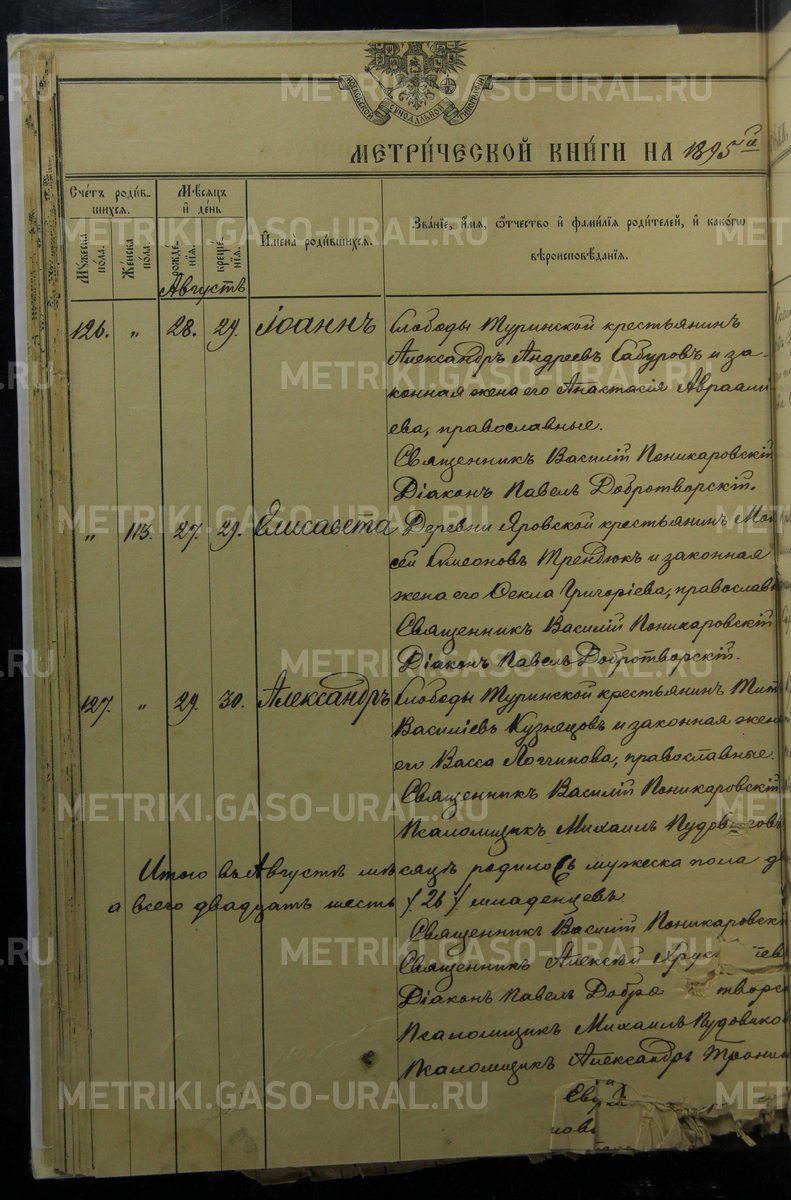 МОСКОВСКОЙ СѴНОДАЛЬНОЙ ТИПОГРАФІИ
МЕТРИ́ЧЕСКОЙ КНИ́ГИ НА 1895 й
Сче́тъ роди́в-
шихся.
Мꙋ́жеска
по́ла.
Же́нска
по́ла.
Мѣ́сяцъ
и҆ де́нь
рожде́-
нїя.
креще́-
нїя.
И҆мена̀ роди́вшихся.
Зва́нїе, и҆́мѧ, ѻ҆́тчество и҆ фами́лїѧ роди́телей, и҆ како́гѡ
вѣроисповѣ́данїѧ.
Августъ
126. „ 28. 29. Іоаннъ Слободы Туринской крестьянинъ
Александръ Андреевъ Сабуровъ и за-
конная жена его Анастасія Авраами
ева, православные.
Священникъ Василій Поникаровскій
Діаконъ Павелъ Добротворскій.
„ 113. 27. 29. Елисавета Деревни Яровской крестьянинъ Мои
сей Симеоновъ Трендюкъ и законная
жена его Ѳекла Григоріева, православн
Священникъ Василій Поникаровскій
Діаконъ Павелъ Добротворскій.
127. „ 29. 30. Александръ Слободы Туринской крестьянинъ Тит
Василіевъ Кузнецовъ и законная жен
его Васса Логгинова, православные.
Священникъ Василій Поникаровскій
Псаломщикъ Михаилъ
Итого въ Августѣ мѣсяцѣ родилось мужеска пола д
а всего двадцать шесть /26/ младенцевъ
Священникъ Василій Поникаровск
Священникъ Алексѣй
Діаконъ Павелъ Добротворс
Псаломщикъ Михаилъ
Псаломщикъ Александръ
METRIKI.GASO-URAL.RU